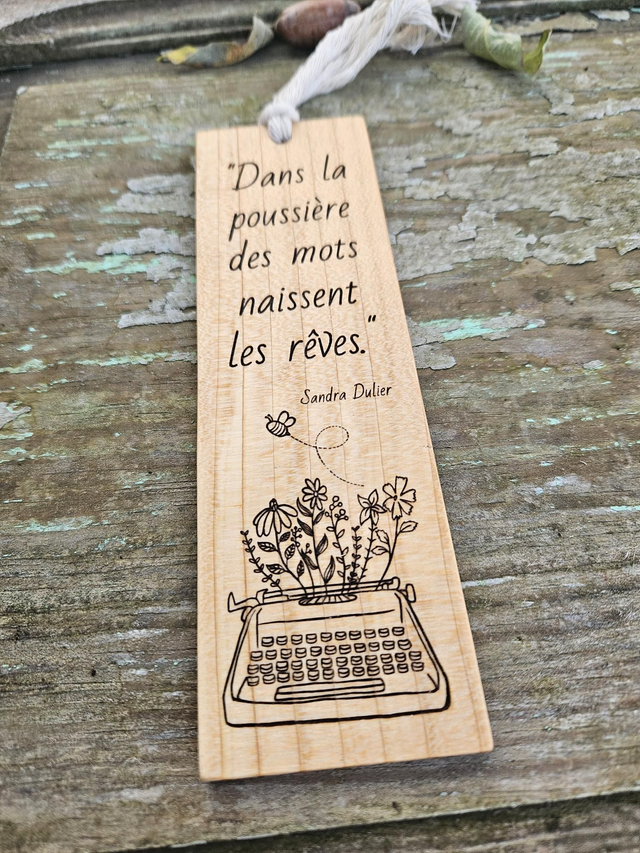 "Dans la
poussière
des mots
naissent
les rêves."
Sandra Dulier